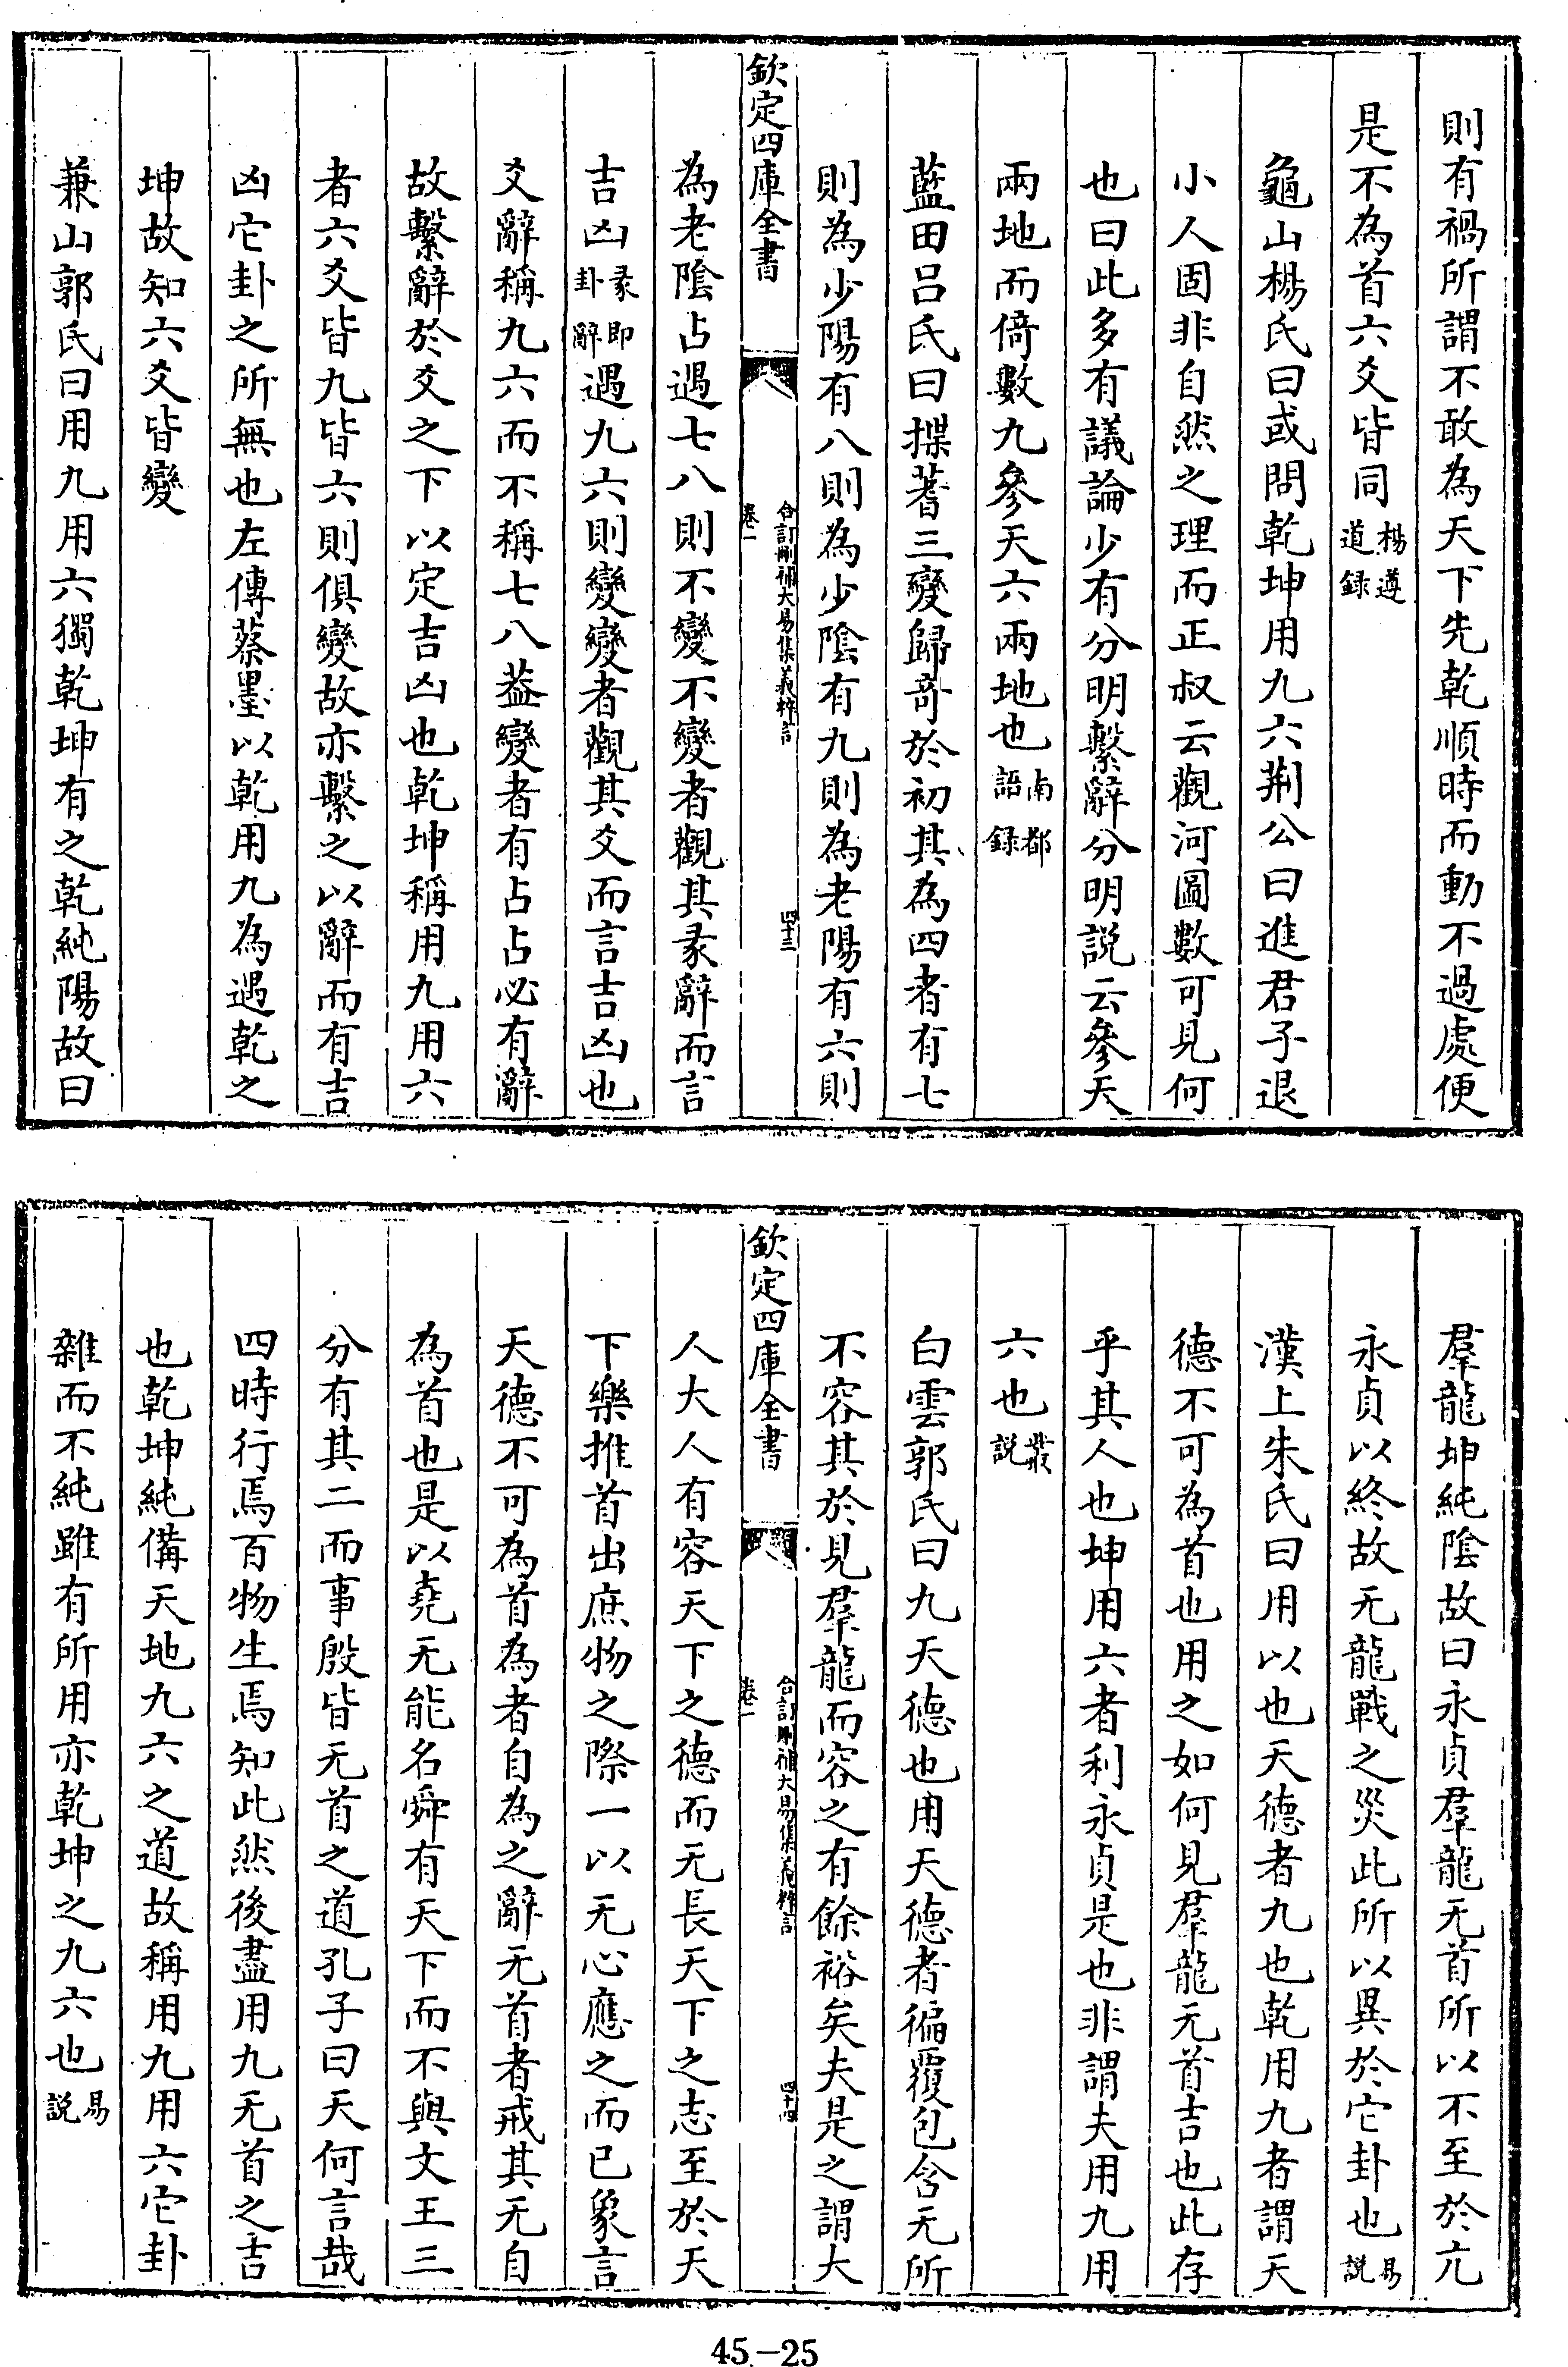 則有禍所謂不敢為天下先乾順時而動不過處便
是不為首六爻皆同楊遵道録
龜山楊氏曰或問乾坤用九六荆公曰進君子退
小人固非自然之理而正叔云觀河圖數可見何
也曰此多有議論少有分明繫辭分明説云參天
兩地而倚數九參天六兩地也南都語録
藍田吕氏曰揲蓍三變歸奇於初其為四者有七
則為少陽有八則為少陰有九則為老陽有六則
欽定四庫全書
合訂刪補大易集義粹言
卷一
四十三
為老陰占遇七八則不變不變者觀其彖辭而言
吉凶彖即卦辭遇九六則變變者觀其爻而言吉凶也
爻辭稱九六而不稱七八葢變者有占占必有辭
故繫辭於爻之下以定吉凶也乾坤稱用九用六
者六爻皆九皆六則俱變故亦繫之以辭而有吉
凶它卦之所無也左傳蔡墨以乾用九為遇乾之
坤故知六爻皆變
兼山郭氏曰用九用六獨乾坤有之乾純陽故曰
羣龍坤純陰故曰永貞羣龍无首所以不至於亢
永貞以終故无龍戰之災此所以異於它卦也易説
漢上朱氏曰用以也天德者九也乾用九者謂天
德不可為首也用之如何見羣龍无首吉也此存
乎其人也坤用六者利永貞是也非謂夫用九用
六也叢説
白雲郭氏曰九天德也用天德者徧覆包含无所
不容其於見羣龍而容之有餘裕矣夫是之謂大
欽定四庫全書
合訂刪補大易集義粹言
卷一
四十四
人大人有容天下之德而无長天下之志至於天
下樂推首出庶物之際一以无心應之而已象言
天德不可為首為者自為之辭无首者戒其无自
為首也是以堯无能名舜有天下而不與文王三
分有其二而事殷皆无首之道孔子曰天何言哉
四時行焉百物生焉知此然後盡用九无首之吉
也乾坤純備天地九六之道故稱用九用六它卦
雜而不純雖有所用亦乾坤之九六也易説
45-25